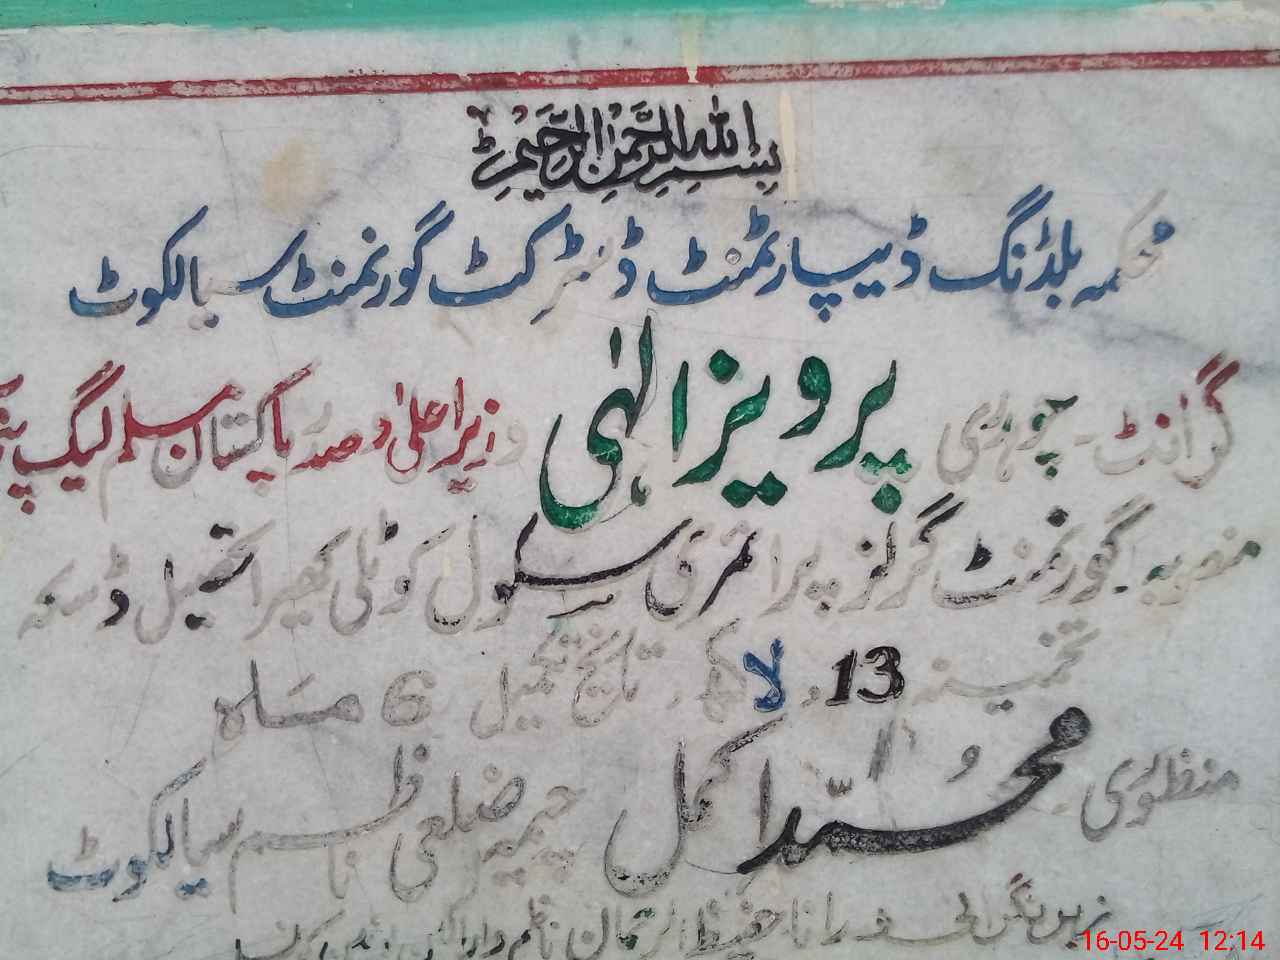 بِسْمِ اللهِ الرَّحْمٰنِ الرَّحِيْمِ ط
محکمہ بلڈنگ ڈیپارٹمنٹ ڈسٹرکٹ گورنمنٹ سیالکوٹ
گرانٹ۔ چوہدری پرویز الٰہی وزیراعلیٰ و صدر پاکستان مسلم لیگ
منصوبہ۔ گورنمنٹ گرلز پرائمری سکول کوٹلی کھیرا تحصیل ڈسکہ
تخمینہ 13 لاکھ۔ تاریخ تکمیل 6 ماہ
منظوری محمّد اکمل چیمہ ضلعی ناظم سیالکوٹ
زیر نگرانی رانا حفیظ الرحمان ناظم
16-05-24 12:14